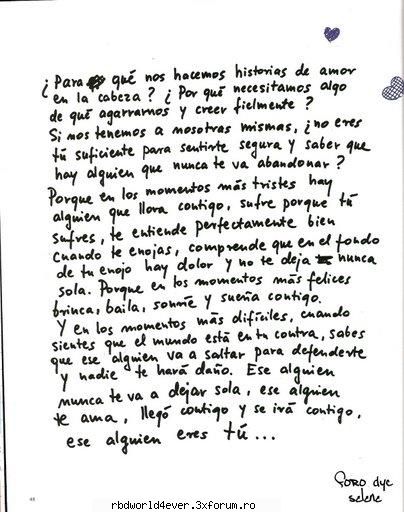 ¿Para qué nos hacemos historias de amor
en la cabeza? ¿Por qué necesitamos algo
de qué agarrarnos y creer fielmente?
Si nos tenemos a nosotras mismas, ¿no eres
tú suficiente para sentirte segura y saber que
hay alguien que nunca te va abandonar?
Porque en los momentos más tristes hay
alguien que llora contigo, sufre porque tú
sufres, te entiende perfectamente bien
cuando te enojas, comprende que en el fondo
de tu enojo hay dolor y no te deja nunca
sola. Porque en los momentos más felices
brinca, baila, sonríe y sueña contigo.
Y en los momentos más difíciles, cuando
sientes que el mundo está en tu contra, sabes
que ese alguien va a saltar para defenderte
y nadie te hará daño. Ese alguien
nunca te va a dejar sola, ese alguien
te ama, llegó contigo y se irá contigo,
ese alguien eres tú...
dyc
selene
rbdworld4ever.3xforum.ro